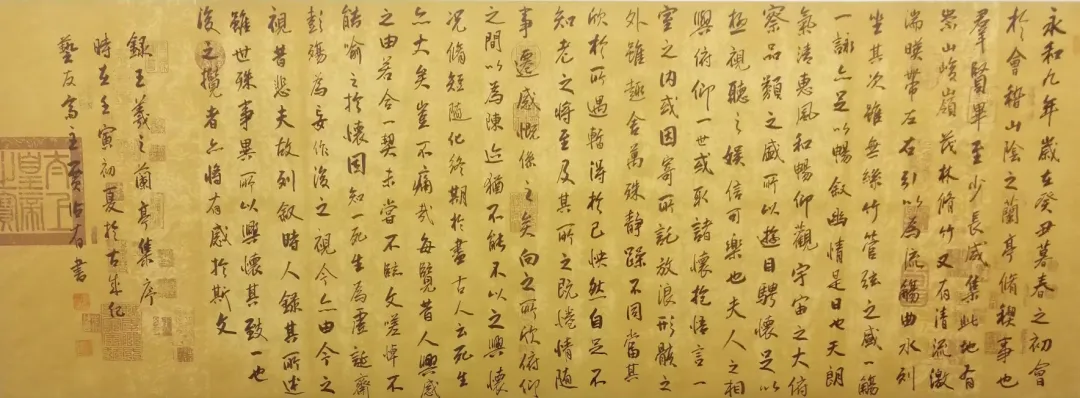 永和九年歲在癸丑暮春之初會
於會稽山陰之蘭亭脩稧事也
羣賢畢至少長咸集此地有
崇山峻嶺茂林脩竹又有清流激
湍暎帶左右引以為流觴曲水列
坐其次雖無絲竹管弦之盛一觴
一詠亦足以暢敘幽情是日也天朗
氣清惠風和暢仰觀宇宙之大俯
察品類之盛所以遊目騁懷足以
極視聽之娛信可樂也夫人之相
與俯仰一世或取諸懷抱悟言一
室之内或因寄所託放浪形骸之
外雖趣舍萬殊静躁不同當其
欣於所遇暫得於己怏然自足不
知老之將至及其所之既惓情隨
事遷感慨係之矣向之所欣俯仰
之間以為陳迹猶不能不以之興懷
况脩短隨化終期於盡古人云死生
亦大矣豈不痛哉每覽昔人興感
之由若合一契未嘗不臨文嗟悼不
能喻之於懷固知一死生為虛誕齊
彭殤為妄作後之視今亦由今之
視昔悲夫故列敘時人録其所述
雖世殊事異所以興懷其致一也
後之攬者亦將有感於斯文
録王羲之蘭亭集序
時在壬寅初夏於古
藝友書